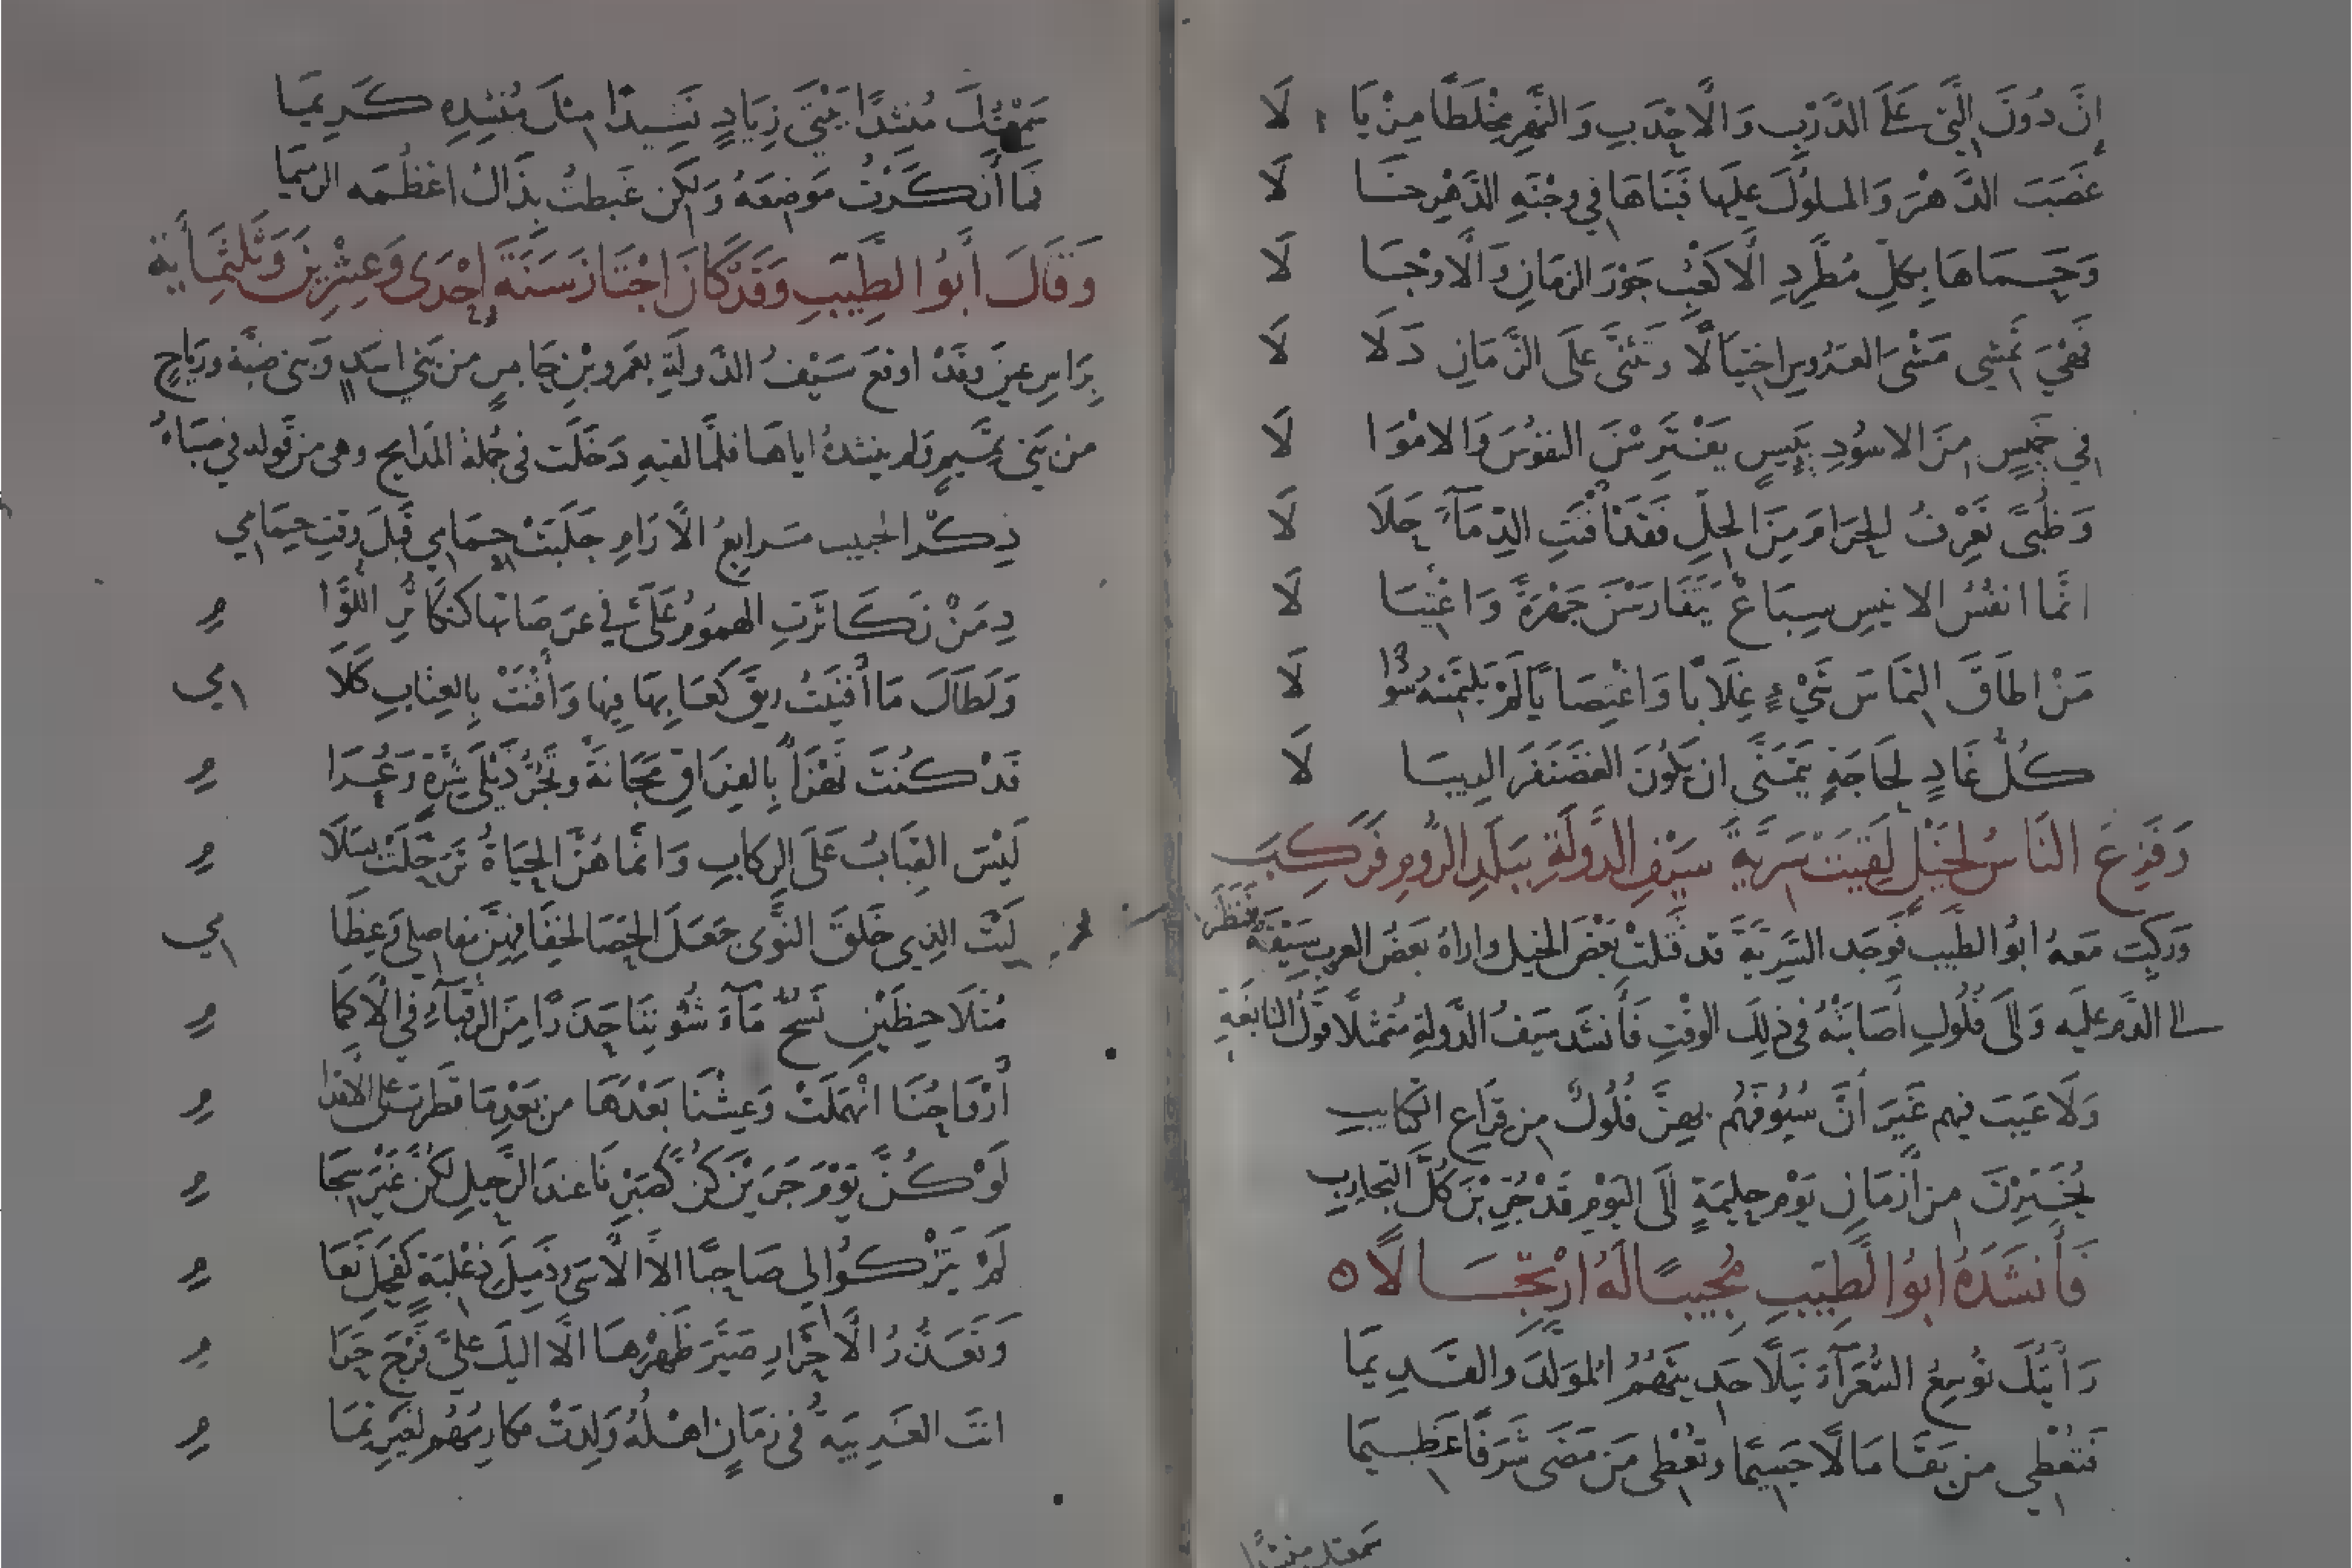 إِنَّ دُونَ الَّتي عَلَى الدَّرْبِ وَالْاحْدَبِ وَالنَّهْرِ مِخْلَطًا مِزْيَا لَا
غَصَبَ الدَّهْرَ وَالملُوكَ عليها فَبَنَاهَا في وجْنَةِ الدَّهْرِ خَا لَا
وَحَمَاهَا بِكلِّ مُطَّرِدِ الْاكْعُبِ جَوْرَ الزمَانِ وَالْاوْجَا لَا
فَهْيَ تمْشِي مَشْىَ العَرُوسِ اخْتِيَالًا وتَثَنَّى عَلَى الزَّمَانِ دَلَا لَا
في خَمِيسٍ مِنَ الاسُودِ بَئِيسٍ يَفْتَرِسْنَ النفوُسَ وَالامْوَا لَا
وَظُبًى تَعْرِفُ الحَرَامَ مِنَ الحِلِّ فَقَدْ أَفْنَتِ الدِّمَآءَ حَلَا لَا
انَّمَا انفُسُ الانيسِ سِبَاعٌ يَتَفَارَسْنَ جَهْرَةً وَاغْتِيَا لَا
مَنْ اطَاقَ التِمَاسَ شَيْءٍ غِلَابًا وَاغْتِصَابًا لَمْ يَلْتَمِسْهُ سُوا لَا
كُلُّ غَادٍ لِحَاجَةٍ يَتَمَنَّى ان يَكُونَ الغَضَنْفَرَ الرِيبَا لَا
وَفَزِعَ النَّاسُ لِخَيْلٍ لَقِيَتْ سَرِيَّةَ سَيْفِ الدَّولَةِ بِبَلَدِ الرُّومِ فَرَكِبَ
وَرَكِبَ مَعَهُ ابوُ الطَّيِّب فَوَجَد السَّرِيَّةَ قد قَتَلَتْ بَعْضَ الخيل واراهُ بَعْضُ العرب سَيْفَهُ فَنَظَرَ
إلى الدَّم عليَه وَالَى فُلُولٍ أَصَابَتْهُ في ذلِكَ الوقْتِ فَأَنشَدَ سَيفُ الدَّولةِ مُتَمثّلًا قَولَ النابغَةِ
وَلَا عَيبَ فيهم غَيرَ أَنَّ سُيُوفَهُم بِهِنَّ فُلُولٌ مِن قِرَاعِ الكتَايبِ
تُخُيِّرْنَ مِن ازمَانِ يَوْمِ حلِيمَةٍ الَى اليَوْمِ قَدْ جُرِّبْنَ كُلَّ التجَارِبِ
فَأَنشَدَهُ ابوُ الطَّيِّبِ مُجِيبًا لَهُ ارْتِجَالًا ٥
رَأَيتُكَ تُوسِعُ الشُعَرَآءَ نَيْلًا حَدِيثَهُمُ الموَلَّدَ والقَدِيمَا
فَتعْطِي مَن بَقَا مَالًا جَسِيمًا وتعْطِى مَن مَضَى شَرَفًا عَظِيمَا
سمعتك منشدا
سَمِعْتُكَ مُنشِدًا بَيْتَيْ زِيَادٍ نَشِيدًا مِثْلَ مُنشِدِهِ كَرِيمَا
فَمَا أَنكَرْتُ مَوضِعَهُ وَلكِن غَبطتُ بِذَاكَ اعْظُمَه الرَّمِيمَا
وَقَالَ أَبوُ الطَّيِّبِ وَقَدْ كَانَ اجْتَازَ سَنَةَ إِحْدَى وَعِشْرِينَ وَثَلثمِأيَة
بِرَاسِ عينٍ وقَدْ اوقعَ سَيْفُ الدَّولَةِ بعَمرِو بْنِ حَابسٍ من بَني اسَدٍ وَبنى ضبّة ورِيَاحٍ
من بَني تَمِيمٍ وَلم ينشدهُ اياهَا فلمَّا لقيهِ دَخَلَت في جُملة المَدَايح وهي من قوله في صِبَاهُ
ذِكْرُ الحَبيب مَرَابِعُ الْارَامِ جَلَبَتْ حِمَامِي قَبْلَ وقتِ حِمَامِي
دِمَنٌ تَكَاثَرَتِ الهمُومُ عَلَىَّ في عَرَصَاتها كتكَاثُرِ اللُوَّا مِ
وَلَطَالَ مَا أَفنَيتُ ريقَ كَعَابِهَا فِيهَا وَأَفْنَتْ بِالعِتَابِ كَلَا مِي
قَدْ كُنتَ تَهْزَأُ بِالفِرَاقِ مَجَانَةً وتَجُرُّ ذَيْلَيْ شِرَّةٍ وَعُرَا مِ
لَيْسَ القِبَابُ عَلَى الرِكَابِ وَانَّمَا هُنَّ الحيَاةُ تَرَحَّلَتْ بِسَلَا مِ
لَيْتَ الذِي خَلَقَ النَّوَى جَعَلَ الحَصَا لِخِفَافِهِنَّ مفَاصلي وَعِظَا مِي
مُتَلَاحِظَيْنِ نَسُحُّ مَآءَ شُئُونِنَا حَذَرًا مِنَ الرُّقَبَآءِ فِي الْاكمَا مِ
أَرْوَاحُنَا انْهَمَلَتْ وَعِشْنَا بَعْدَهَا من بَعْدِ مَا قَطَرتْ عَلى الْاقدَا مِ
لَوْ كُنَّ يَوْمَ جَرَيْنَ كُنَّ كَصَبْرِنَا عندَ الرَّحيلِ لَكُنَّ غَيْرَ سِجَا مِ
لَمْ يَتْرُكُوا لي صَاحِبًا الاَّ الْاسَى وذَمِيلَ ذِعْلِبَةٍ كَفَحْلِ نَعَا مِ
وَتَعَذُّرُ الْاحْرَارِ صَيَّرَ ظَهْرَهَا الَّا اليكَ عَليَّ فَرْجَ حَرَا مِ
انتَ الغَرِيبَةُ في زمَانٍ اهْلُهُ وَلِدَتْ مَكَارِمُهُم لغَيرِ تمَا مِ